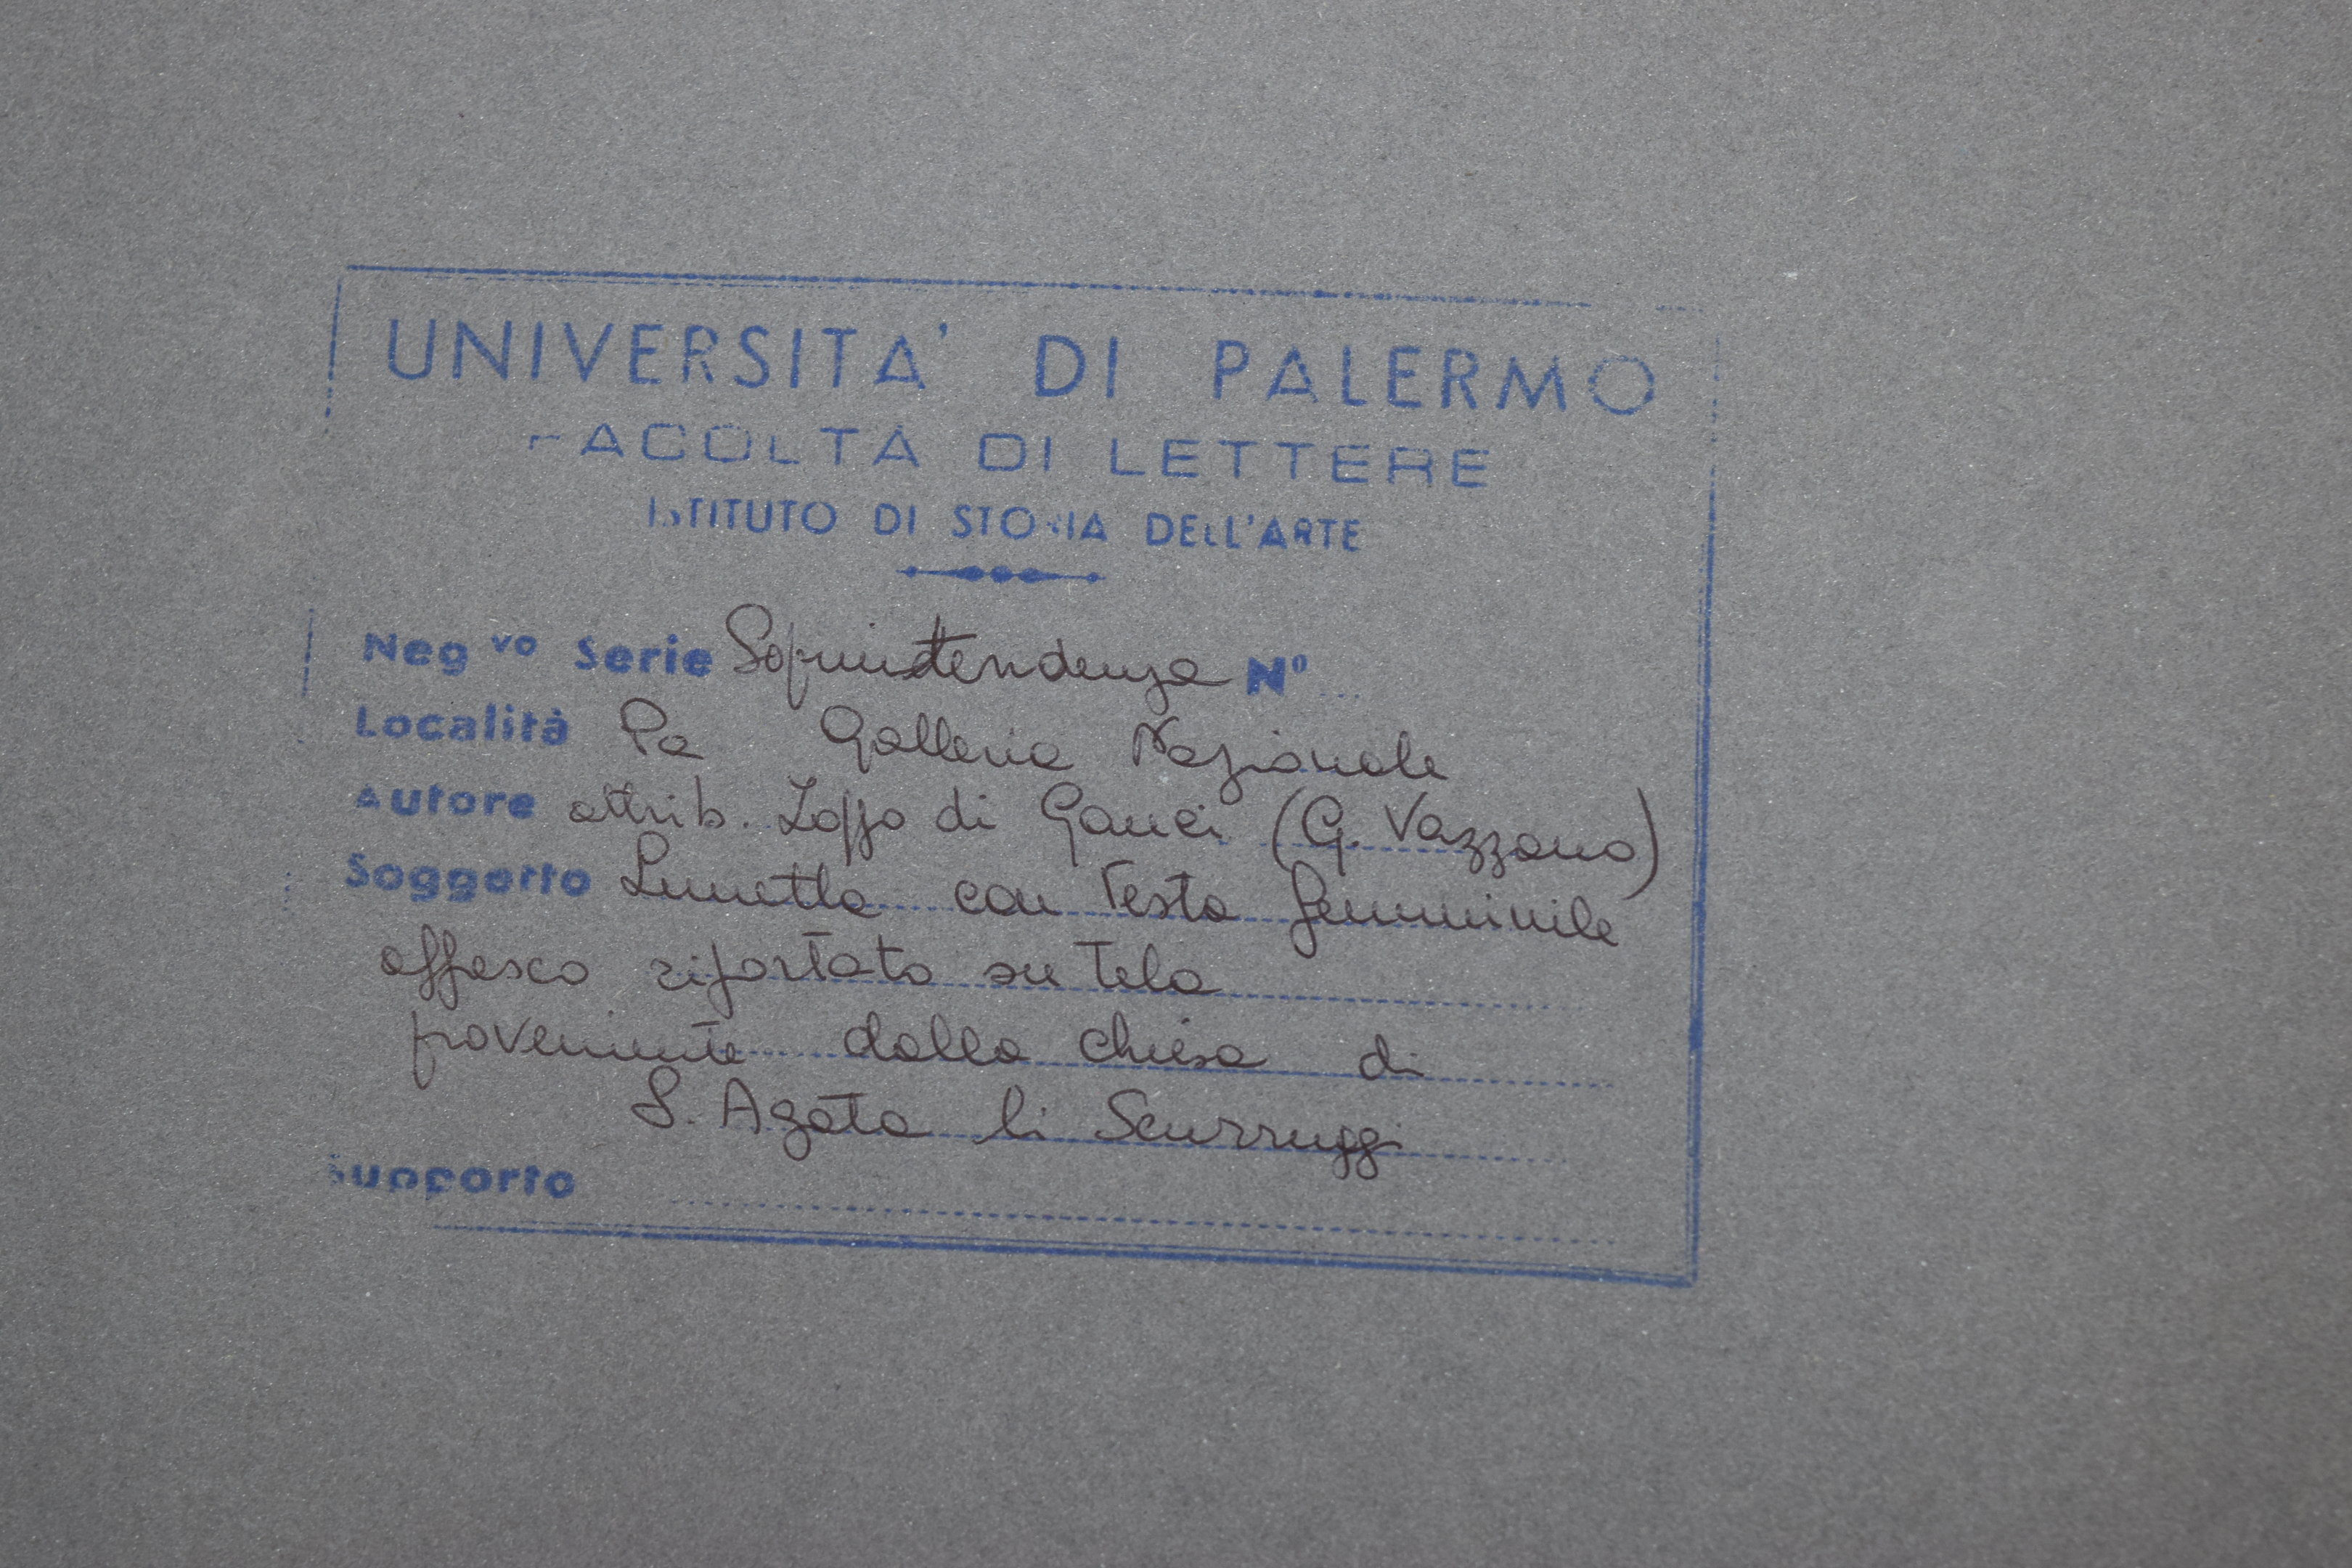 UNIVERSITA' DI PALERMO
FACOLTÀ DI LETTERE
ISTITUTO DI STORIA DELL'ARTE
Neg vo Serie Soprintendenza N°
Località Pa Galleria Nazionale
Autore attrib. Zoppo di Ganci (G. Vazzano)
Soggetto Lunetta con Testa femminile
affresco riportato su Tela
proveniente dalla chiesa di
S. Agata li Scurruggi
Supporto